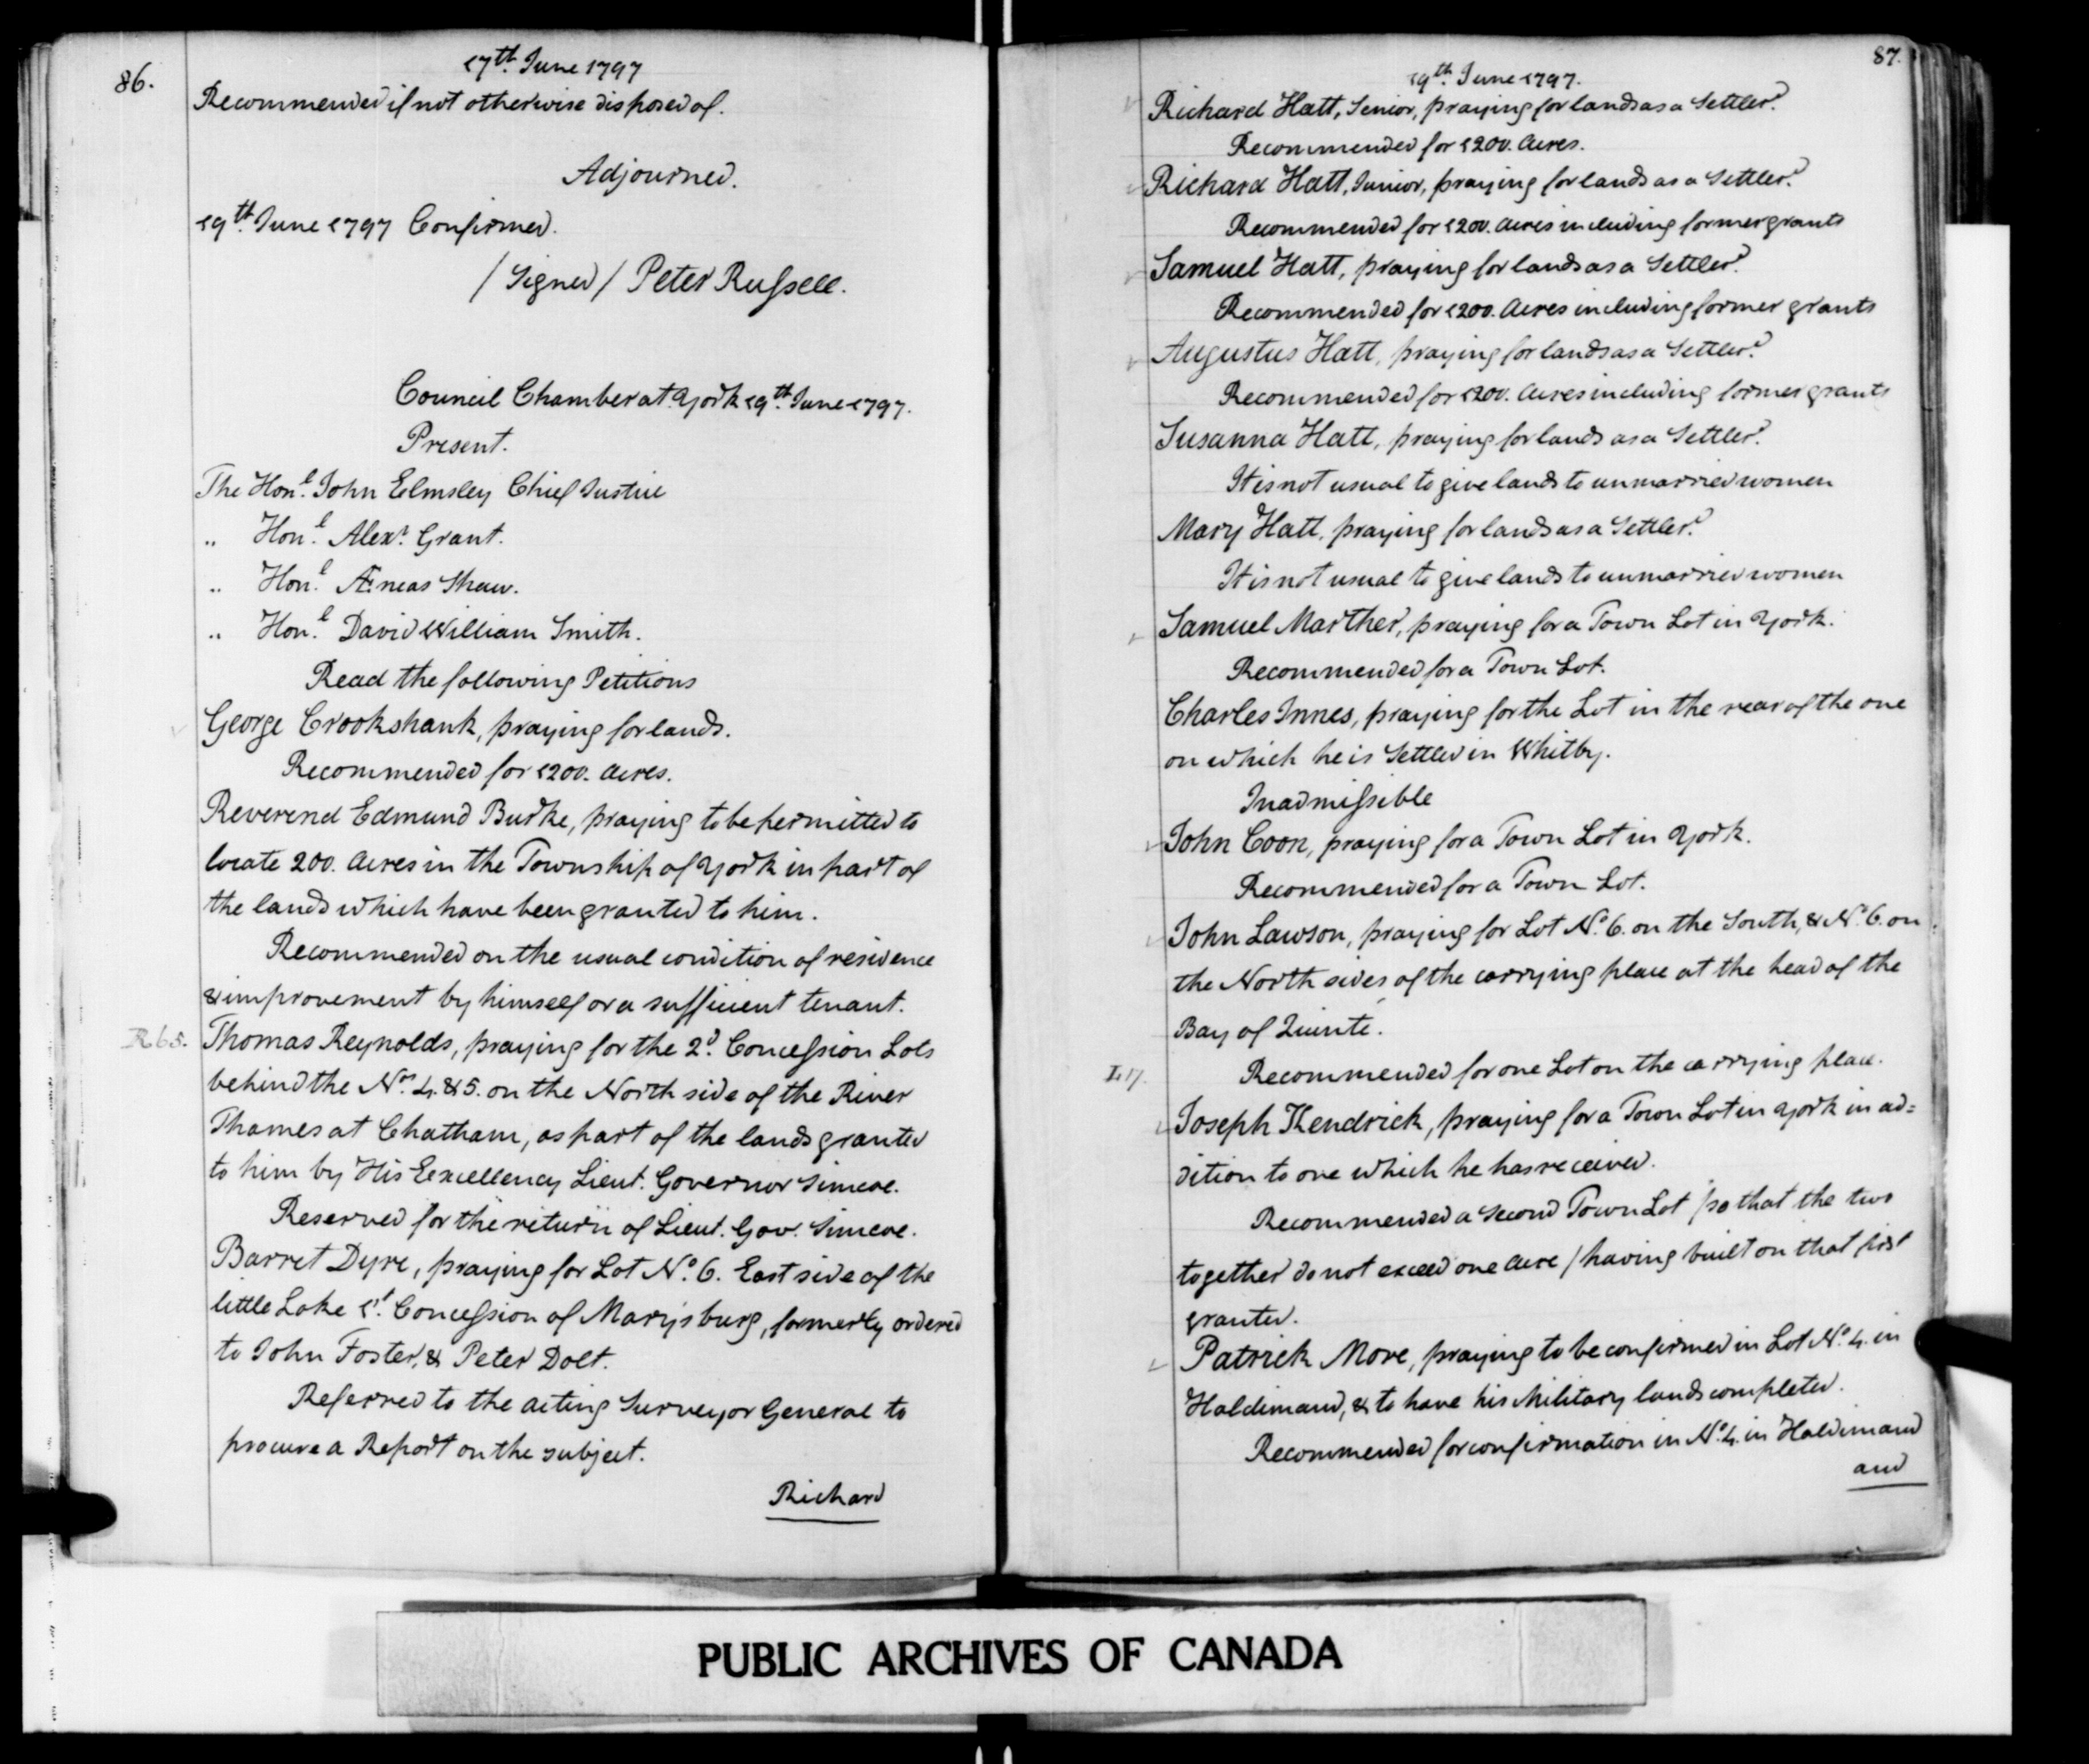 86.
17th. June 1797
Recommended if not otherwise disposed of.
Adjourned.
19th. June 1797 Confirmed.
/ Signed / Peter Russell.
Council Chamber at York 19th. June 1797.
Present.
The Honl. John Elmsley Chief Justice
" Honl. Alexr. Grant.
" Honl. Æneas Shaw.
" Honl. David William Smith.
Read the following Petitions
George Crookshank, praying for lands.
Recommended for 1200. Acres.
Reverend Edmund Burke, praying to be permitted to
locate 200. Acres in the Township of York in part of
the lands which have been granted to him.
Recommended on the usual condition of residence
& improvement by himself or a sufficient tenant.
R 65.
Thomas Reynolds, praying for the 2d. Concession Lots
behind the Nos. 4. & 5. on the North side of the River
Thames at Chatham, as part of the lands granted
to him by His Excellency Lieut. Governor Simcoe.
Reserved for the return of Lieut. Gov. Simcoe.
Barret Dyre, praying for Lot No. 6. East side of the
little Lake 1st. Concession of Marysburg, formerly ordered
to John Foster, & Peter Dolt.
Referred to the acting Surveyor General to
procure a Report on the subject.
Richard
87.
19th. June 1797.
Richard Hatt, Senior, praying for lands as a Settler.
Recommended for 1200. Acres.
Richard Hatt, Junior, praying for lands as a Settler.
Recommended for 1200. Acres including former grants
Samuel Hatt, praying for lands as a Settler.
Recommended for 1200. Acres including former grants
Augustus Hatt, praying for lands as a Settler.
Recommended for 1200. Acres including former grants
Susanna Hatt, praying for lands as a Settler.
It is not usual to give lands to unmarried women
Mary Hatt, praying for lands as a Settler.
It is not usual to give lands to unmarried women
Samuel Marther, praying for a Town Lot in York.
Recommended for a Town Lot.
Charles Innes, praying for the Lot in the rear of the one
on which he is Settled in Whitby.
Inadmissible
John Coon, praying for a Town Lot in York.
Recommended for a Town Lot.
John Lawson, praying for Lot No. 6. on the South, & No. 6. on
the North sides of the carrying place at the head of the
Bay of Quinte.
L 17.
Recommended for one Lot on the carrying place.
Joseph Kendrick, praying for a Town Lot in York in ad=
dition to one which he has received.
Recommended a second Town Lot /so that the two
together do not exceed one Acre / having built on that first
granted.
Patrick More, praying to be confirmed in Lot No. 4. in
Haldimand, & to have his Military lands completed.
Recommended for confirmation in No. 4. in Haldimand
and
PUBLIC ARCHIVES OF CANADA